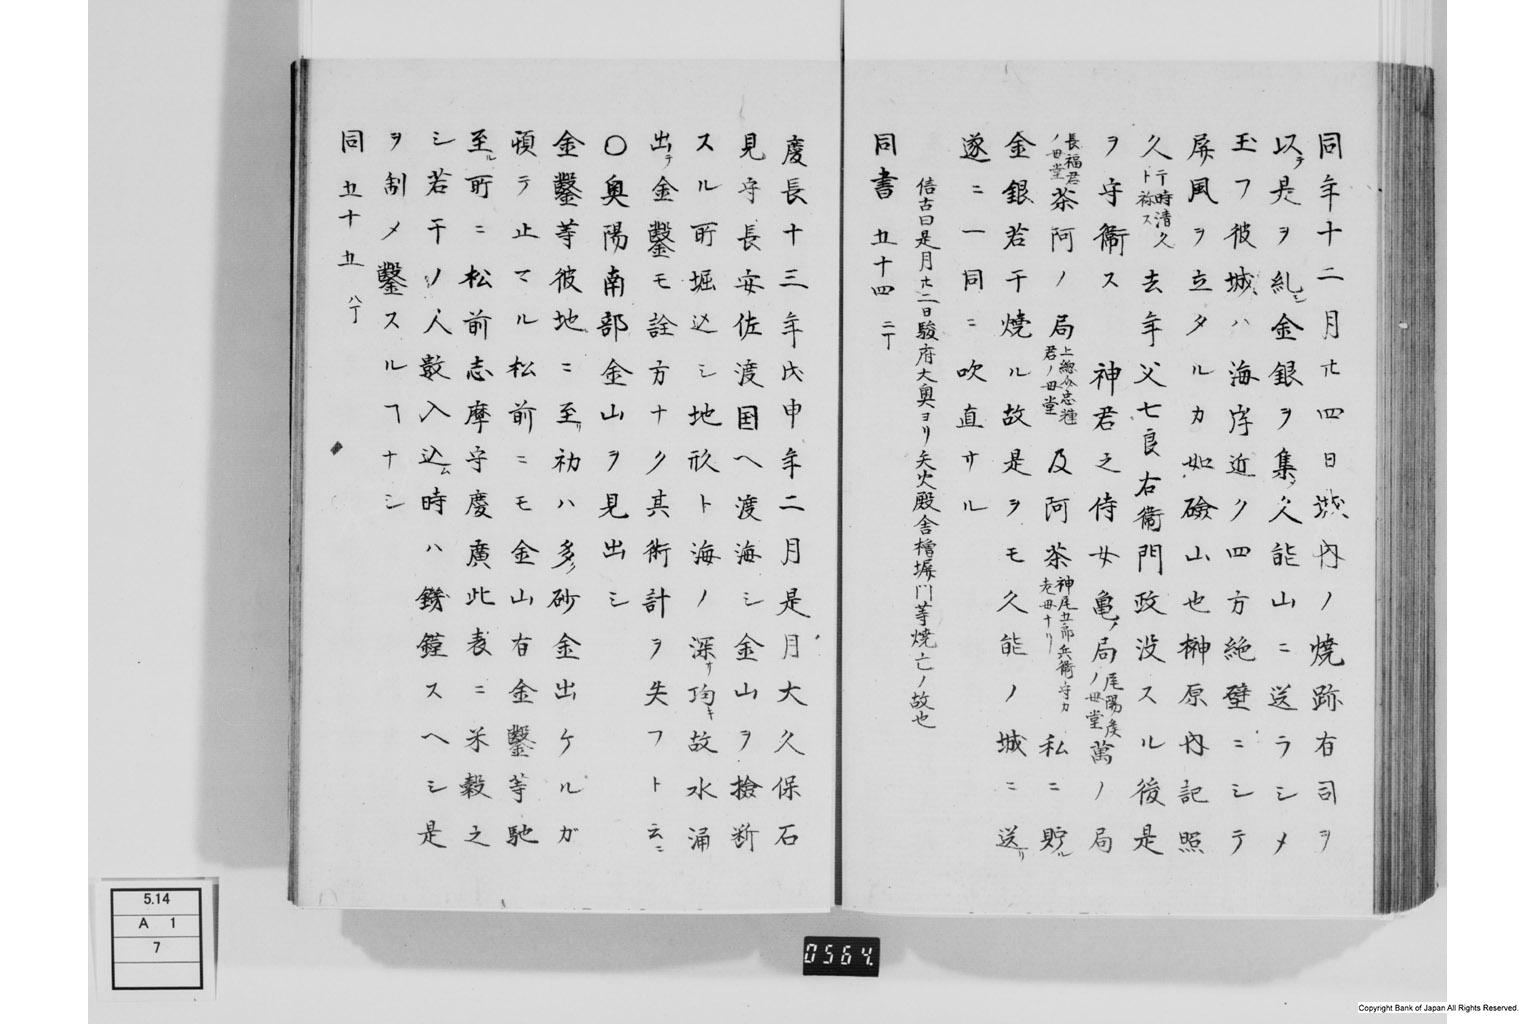 同年十二月廿四日城内ノ焼跡有司ヲ
以テ是ヲ糺シ金銀ヲ集メ久能山ニ送ラシメ
玉フ彼城ハ海岸近ク四方絶壁ニシテ
屏風ヲ立タルカ如礆山也榊原内記照
久于時清久ト称ス去年父七良右衛門政没スル後是
ヲ守衛ス 神君之侍女亀ノ局尾陽侯ノ母堂萬ノ局
長福君ノ母堂茶阿ノ局上總介忠輝君ノ母堂及阿茶神尾五郎兵衛守カ老母ナリ私ニ貯ル
金銀若干焼ル故是ヲモ久能ノ城ニ送リ
遂ニ一同ニ吹直サル
信古曰是月廿二日駿府大奥ヨリ失火殿舎櫓塀門等焼亡ノ故也
同書 五十四 二丁
慶長十三年戊申年二月是月大久保石
見守長安佐渡国ヘ渡海シ金山ヲ撿断
スル所堀込シ地形ト海ノ深サ均キ故水涌
出テ金鑿モ詮方ナク其術計ヲ失フト云ニ
〇奥陽南部金山ヲ見出シ
金鑿等彼地ニ至リ初ハ多ク砂金出ケルガ
頓テ止マル松前ニモ金山有金鑿等馳
至ル所ニ松前志摩守慶廣此表ニ米穀乏
シ若干ノ人数入込ム時ハ饑饉スヘシ是
ヲ制メ鑿スルヿナシ
同 五十五 八丁
5.14
A 1
7
0564
Copyright Bank of Japan All Rights Reserved.